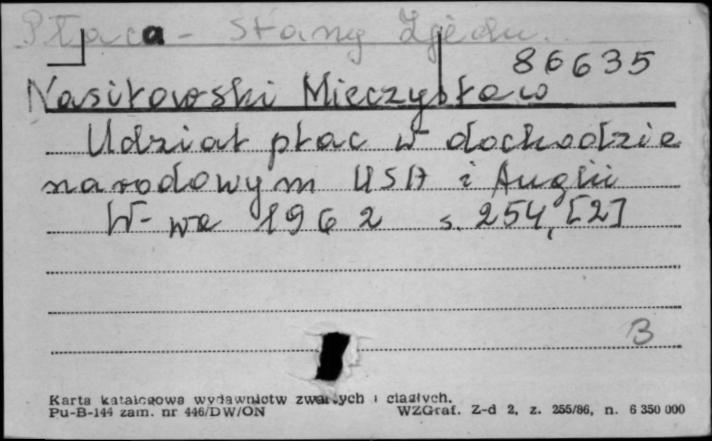 Płaca - Stany Zjedn.
86635
Nasiłowski Mieczysław
Udział płac w dochodzie
narodowym USA i Anglii
W-wa 1962 s. 254, [2]
B
Karta katalogowa wydawnictw zwartych i ciągłych.
Pu-B-144 zam. nr 446/DW/ON WZGraf. Z-d 2, z. 255/86, n. 6 350 000